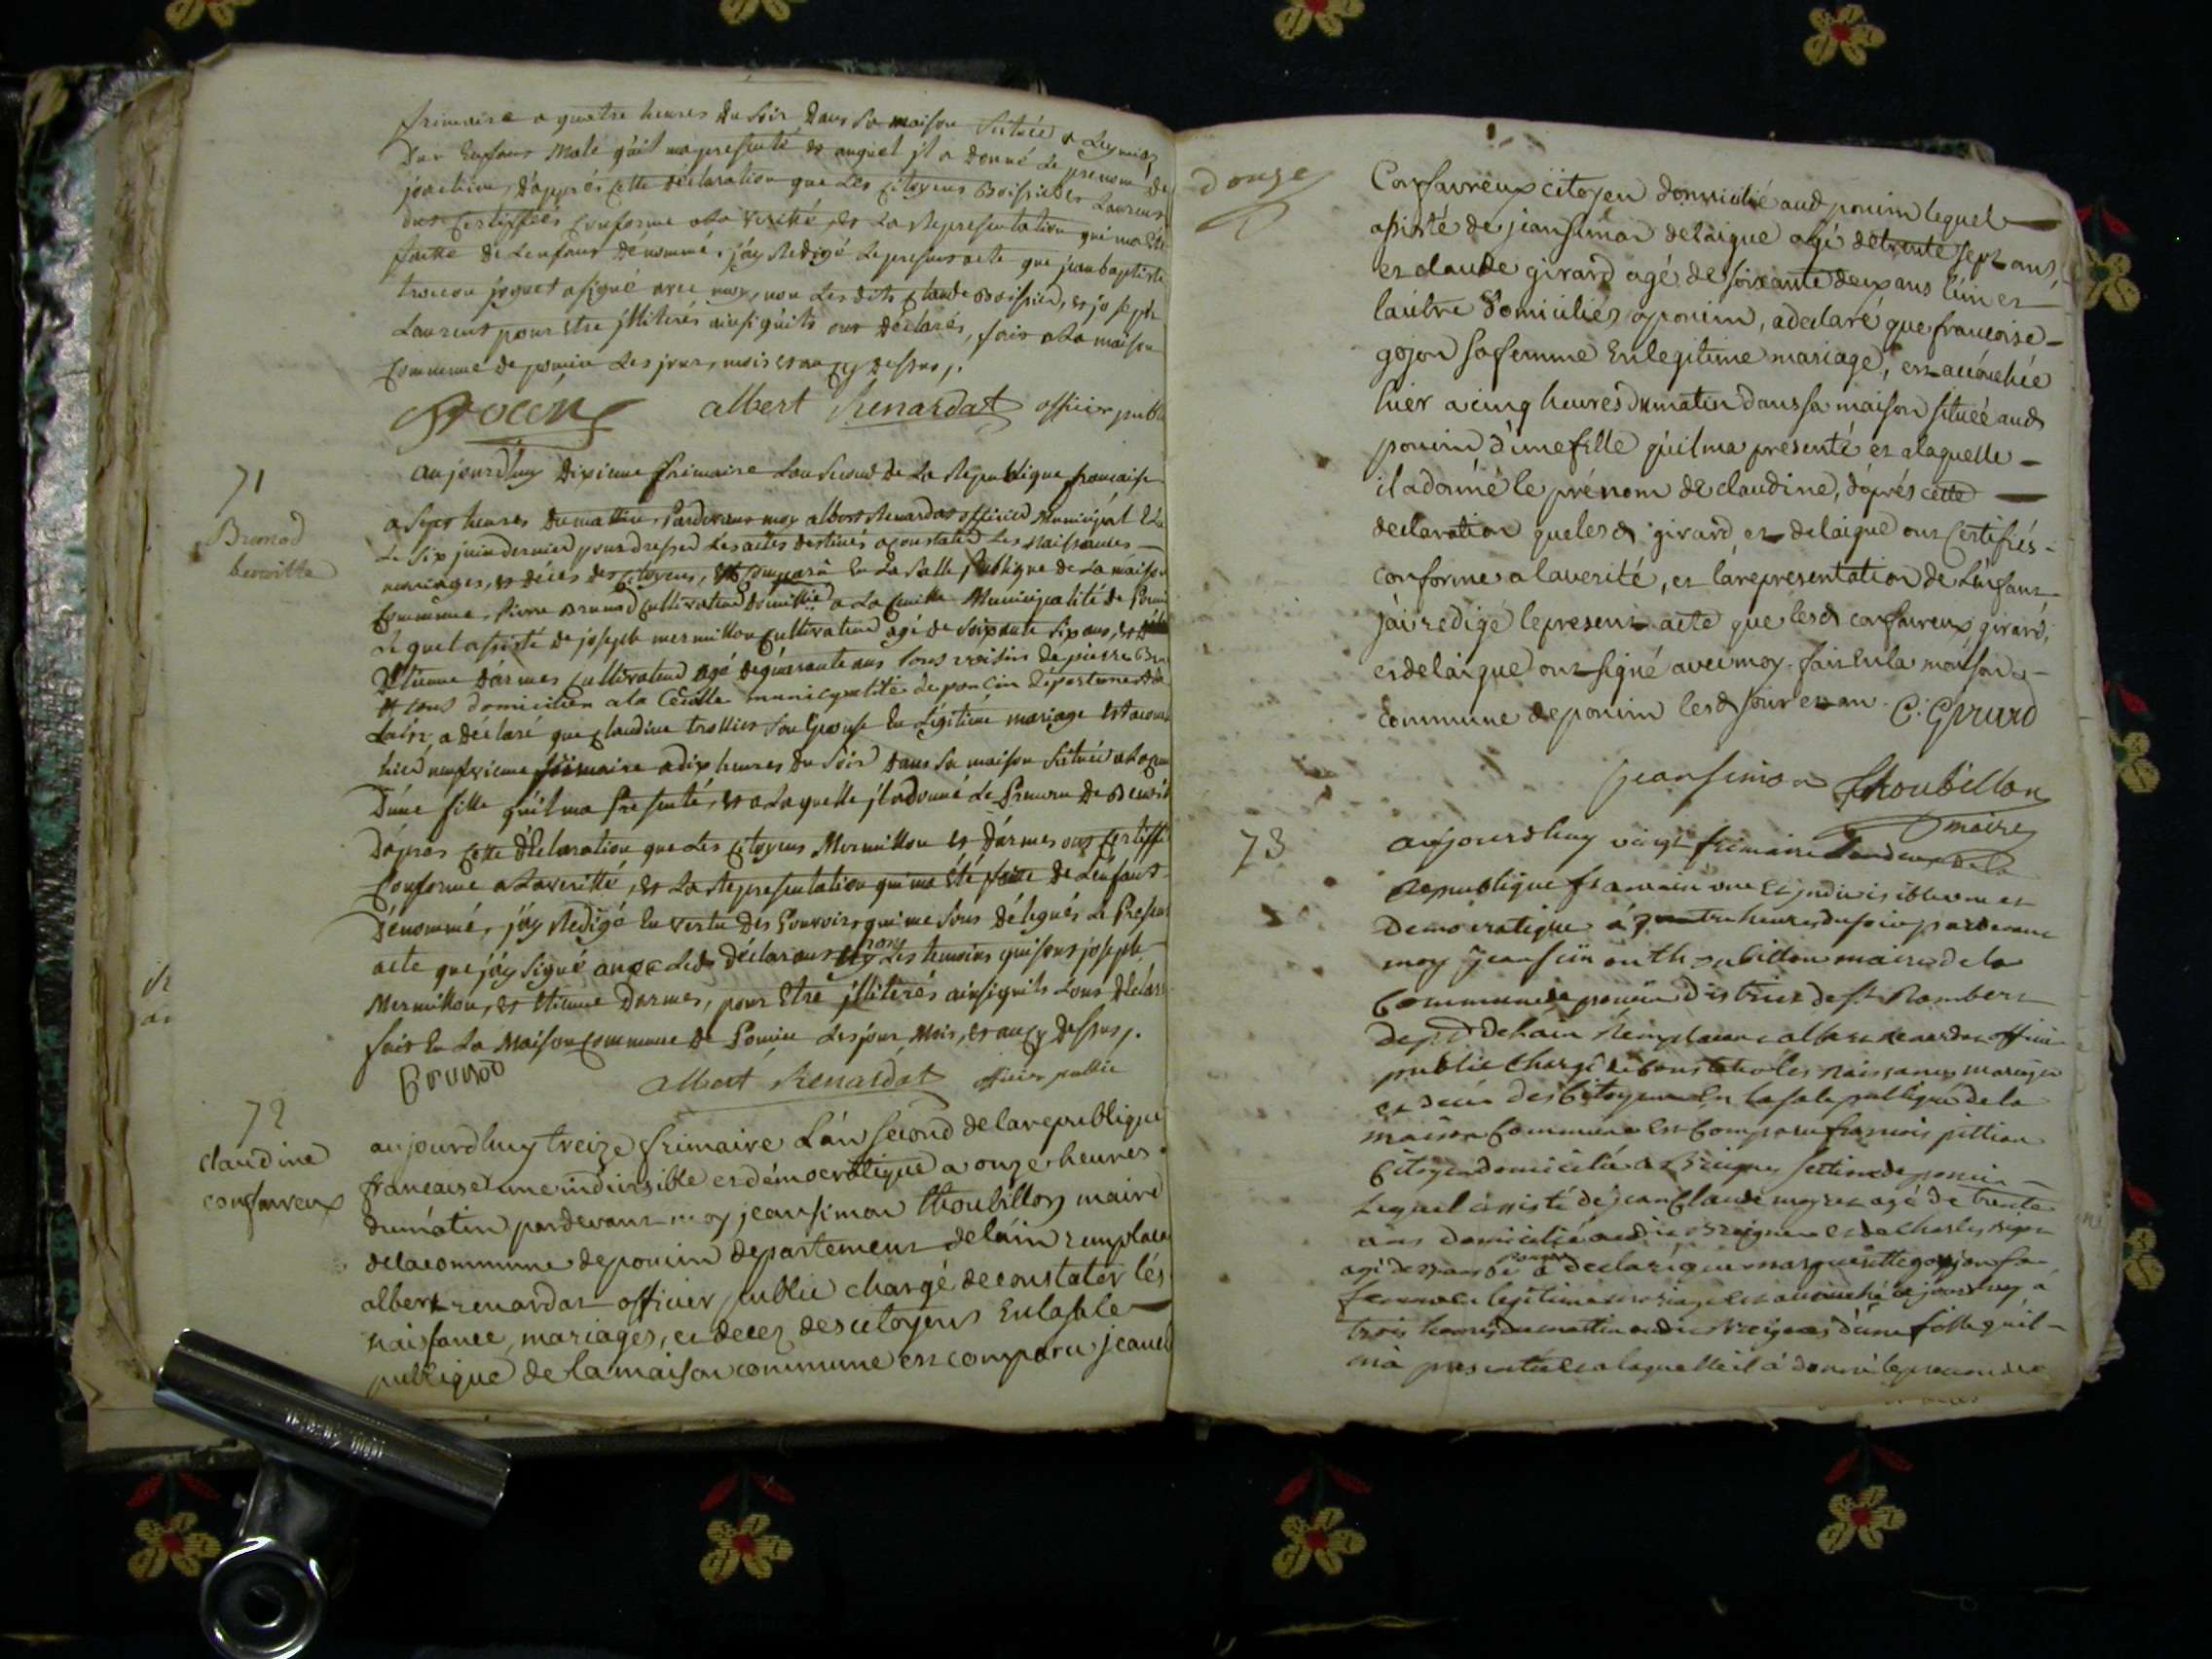 frimaire a quatre heures du soir dans sa maison située a Leymiat
d'un Enfans Male qu'il ma presenté et auquel jl a donné Le prenom de
joachim, d'apprés cette declaration que Les citoyens Boissieder Laurens
ont certiffiés conforme a La verité, et La Representation qui ma Eté
faitte de L'enfans denommé, j'ay Redigé Le presens acte que jean baptiste
joquet a signé avec moy, non Les dits Claude Boissied, et joseph
Laurens pour Etre jlliterés ainsi qu'ils ons déclarés, fais a La maison
commune de poncin Les jour, mois et an cy dessus,.
albert Renardat officier public
71
Brunod
benoitte
aujourd'huy dixieme frimaire L'an Second de La Republique francaise
a Sept heures du mattin, Pardevans moy albert Renardat officier Municipal Elu
Le Six juin dernier pour dresser Les actes destinés a constater Les Naissances
mariages, et décès des citoyens, Est Comparu En La Salle Publique de La maison
Commune, Pierre Brunod cultivateur domicillié a La Cueille Municipalité de Poncin
Lequel assisté de joseph mermillon cultivateur agé de Soixante Six ans, et
Etienne d'armes cultivateur agé de quarante ans tous voisins de pierre Bru
et tous domicilien a la Ceuille municypalité de poncin Departement de
L'ain, a déclaré que Claudine trollier Son Epouse En Légitime mariage Est acouch
hier neufvieme frimaire a dix heures du Soir dans Sa maison Située a La Cue
D'une fille qu'il ma Presenté, et a Laquelle jl a donné Le Prenom de Benoit
D'apres Cette déclaration que Les Citoyens Mermillon et D'armes ons Certiffié
Conforme a La veritté, et La Representation qui ma Eté faitte de L'enfans
Dénommé, j'ay Redigé En vertu des Pouvoirs qui me Sons délegués Le Presens
acte que j'ay Signé avec Led. déclarans non Les temoins qui Sons joseph
Mermillon, et Etienne Darmes, pour Etre jlliterés ainsi qu'ils L'ons Déclar
fais En La Maison Commune de Poncin Les jour, Mois, et an cy Dessus,.
Brunod
albert Renardat officier public
72
claudine
confavreux
aujourdhuy treize frimaire L'an second de la republique
francaise une indivisible et démocratique a onze heures
du matin pardevant moy jean simon thoubillon maire
de la commune de poncin departement de l'ain remplacan
albert renardat officier public chargé de constater les
naissance, mariages, et decez des citoyens En la sale
publique de la maison commune est comparu jean
donze
Confavreux citoyen domicilié aud poncin lequel
assisté de jean simon delaigue agé de trente sept ans
et claude girard agé de soixante deux ans l'un et
l'autre domiciliés a poncin, a declaré que francoise
gojon sa femme En legitime mariage, est acouchée
hier a cinq heures du matin dans sa maison située aud
poncin d'une fille qu'il ma presenté et a laquelle
il a donné le prénom de claudine, d'aprés cette
declaration que lesd girard et delaigue ont Certifiés
conforme a la verité, et la representation de L'enfant
j'ai redigé le present acte que lesd confavreux girard,
et delaigue ont signé avec moy. fait En la maison
commune de poncin lesd jour et an. C: Girard
jean simon thoubillon
maire
73
aujourdhuy vingt frimaire L'an deux de la
Republique francaise une et indivisible et
Democratique à quatre heures du soir pardevant
moy jean simon thoubillon maire de la
Commune de poncin district de st Rambert
dept de Lain Remplacant albert renardat officier
public chargé de constater les naissances mariages
et decès des Citoyens En la sale publique de la
maison Commune Est Comparu francois pittion
Citoyen domicilié a Breignes section de poncin
Lequel assisté de jean Claude moyret agé de trente
ans domicilié audit Breignes et de Charles
agé de a declaré que margueritte goyjon sa
femme en legitime mariage Est acouché aujourdhuy à
trois heures du mattin audit Breignes d'une fille qu'il
m'a presentée et a laquelle il à donné le prenom de